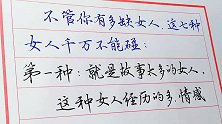 不管你有多缺女人,这七种
女人千万不能碰:
第一种:就是故事太多的女人,
这种女人经历的多,情感